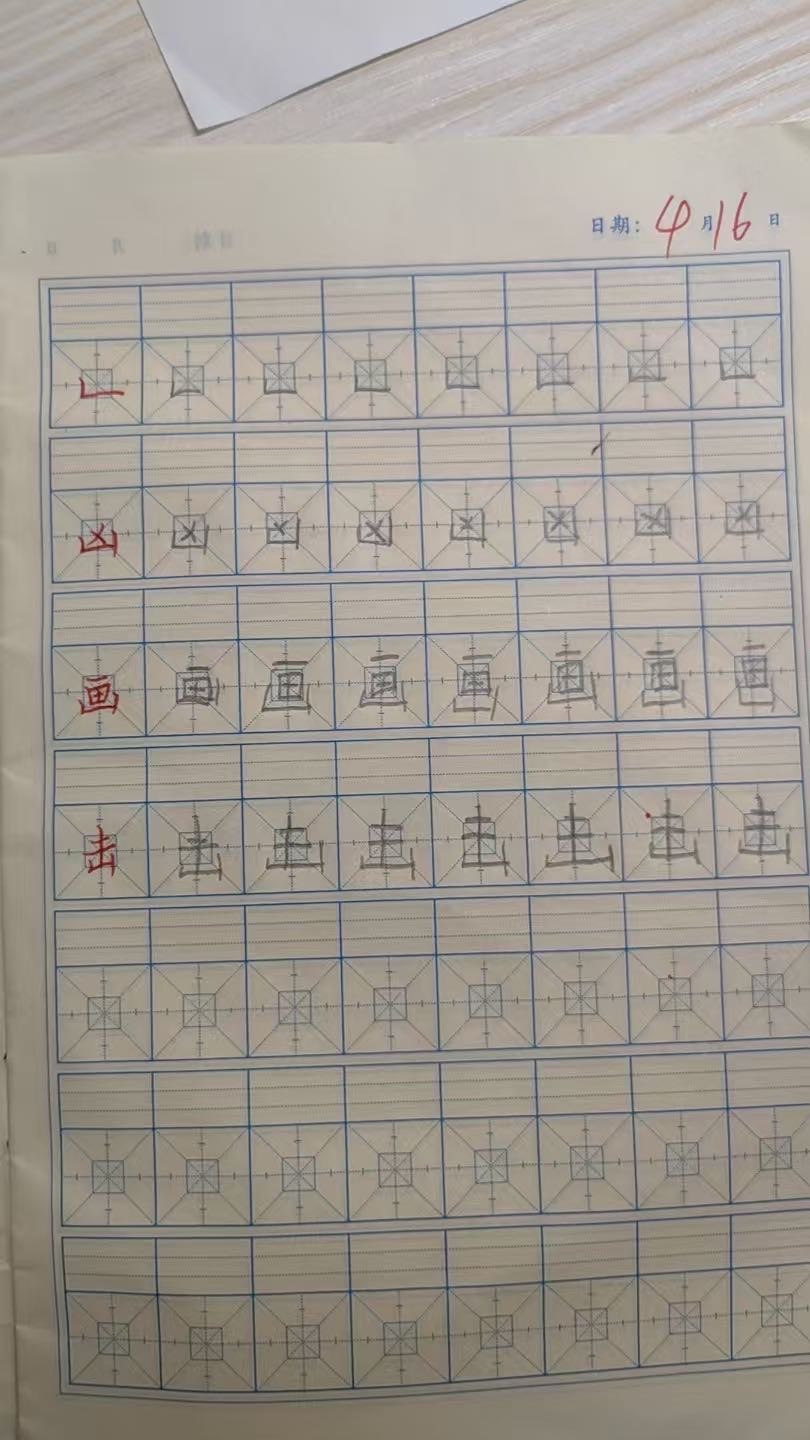 日期：4月16日
𠃊 凵 凵 凵 凵 凵 凵 凵
凶 凶 凶 凶 凶 凶 凶 凶
画 画 画 画 画 画 画 画
击 击 击 击 击 击 击 击